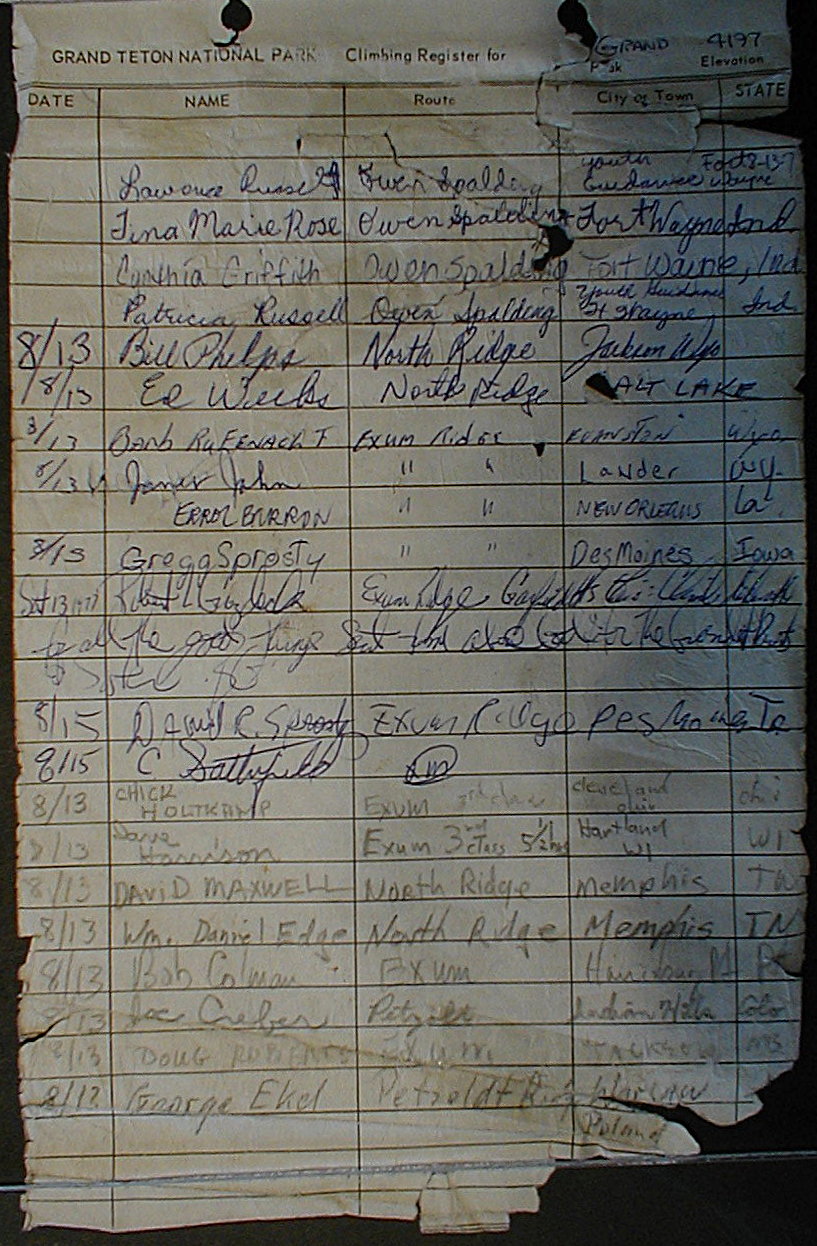 GRAND TETON NATIONAL PARK Climbing Register for GRAND 4197
Peak Elevation
DATE NAME Route City or Town STATE
Lawrence Russell Owen Spalding Youth Guidance Fort Wayne 8-13-7
Tina Marie Rose Owen Spalding Fort Wayne Ind
Cynthia Griffith Owen Spalding Fort Waine, Ind
Patricia Russell Owen Spalding Youth Guidance Ft Wayne, Ind
8/13 Bill Phelps North Ridge Jackson Wyo
8/13 Ed North Ridge SALT LAKE
8/13 Barb RUFENACHT Exum Ridge EVANSTON Wyo
8/13 John " " Lander Wy.
ERROL BARRON " " NEW ORLEANS La.
8/13 Gregg Sprosty " " Des Moines Iowa
13 1977 Robert L Exum Ridge
for all the good things God for the
8/15 David R. Sprosty Exum Ridge Des Moines Ia
8/15 C Satterfield
8/13 CHICK HOLTKAMP EXUM 3rd class Cleveland Ohio Ohi
8/13 Dave Harrison Exum 3rd class 5 1/2 hrs Hartland WI WI
8/13 DAVID MAXWELL North Ridge Memphis TN
8/13 Wm. Daniel Edge North Ridge Memphis TN
8/13 Bob Colman Exum Pa
8/13 Joe Petzoldt Indian Hills Colo
8/13 DOUG Exum JACKSON
8/13 George Ekel Petzoldt Ridge Warsaw
Poland